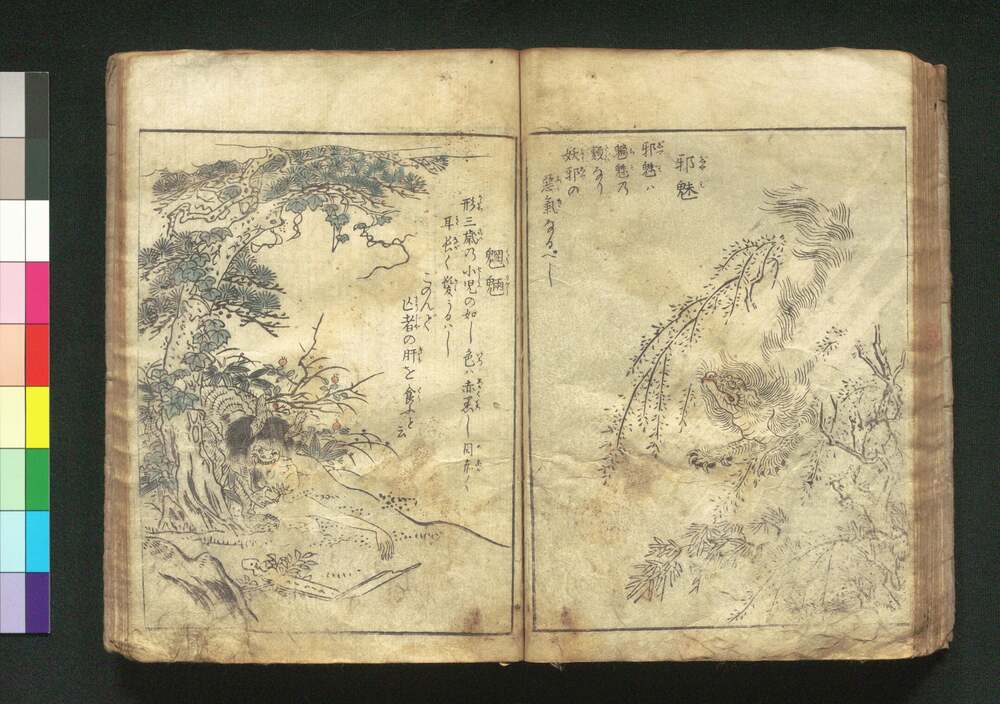 邪魅
邪魅ハ
魑魅の
類なり
妖邪の
惡氣なるべし
魍魎
形三歳の小児の如し色ハ赤黒し目赤く
耳長く髪うるハし
このんで
亡者の肝を食ふと云